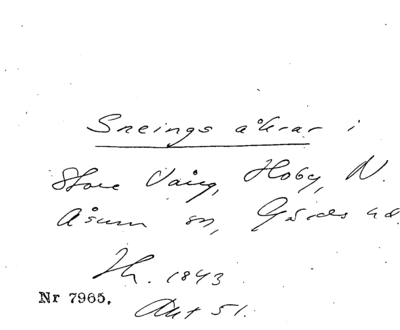 Sneings åkrar i
Store Vång, Hoby, N.
Åsum sn, Gärds hd.
Th. 1843
Nr 7965.
Akt 51.